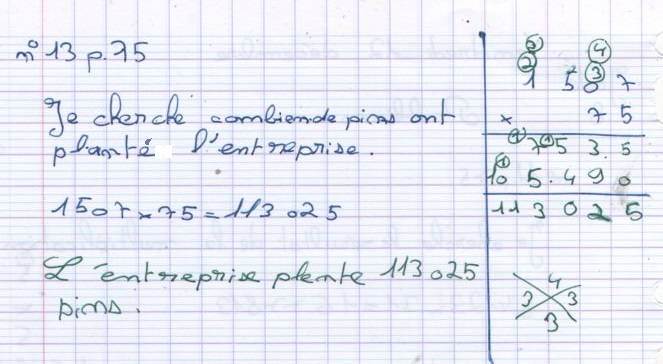 n° 13 p.75
Je cherche combien de pins ont
planté l'entreprise.
1507 × 75 = 113 025
L'entreprise plante 113 025
pins.
5
2 4
1 5 0 3 7
× 7 5
1 7 1 5 3. 5
1 10 5. 4 9 0
11 3 0 2 5
4
3 3
3